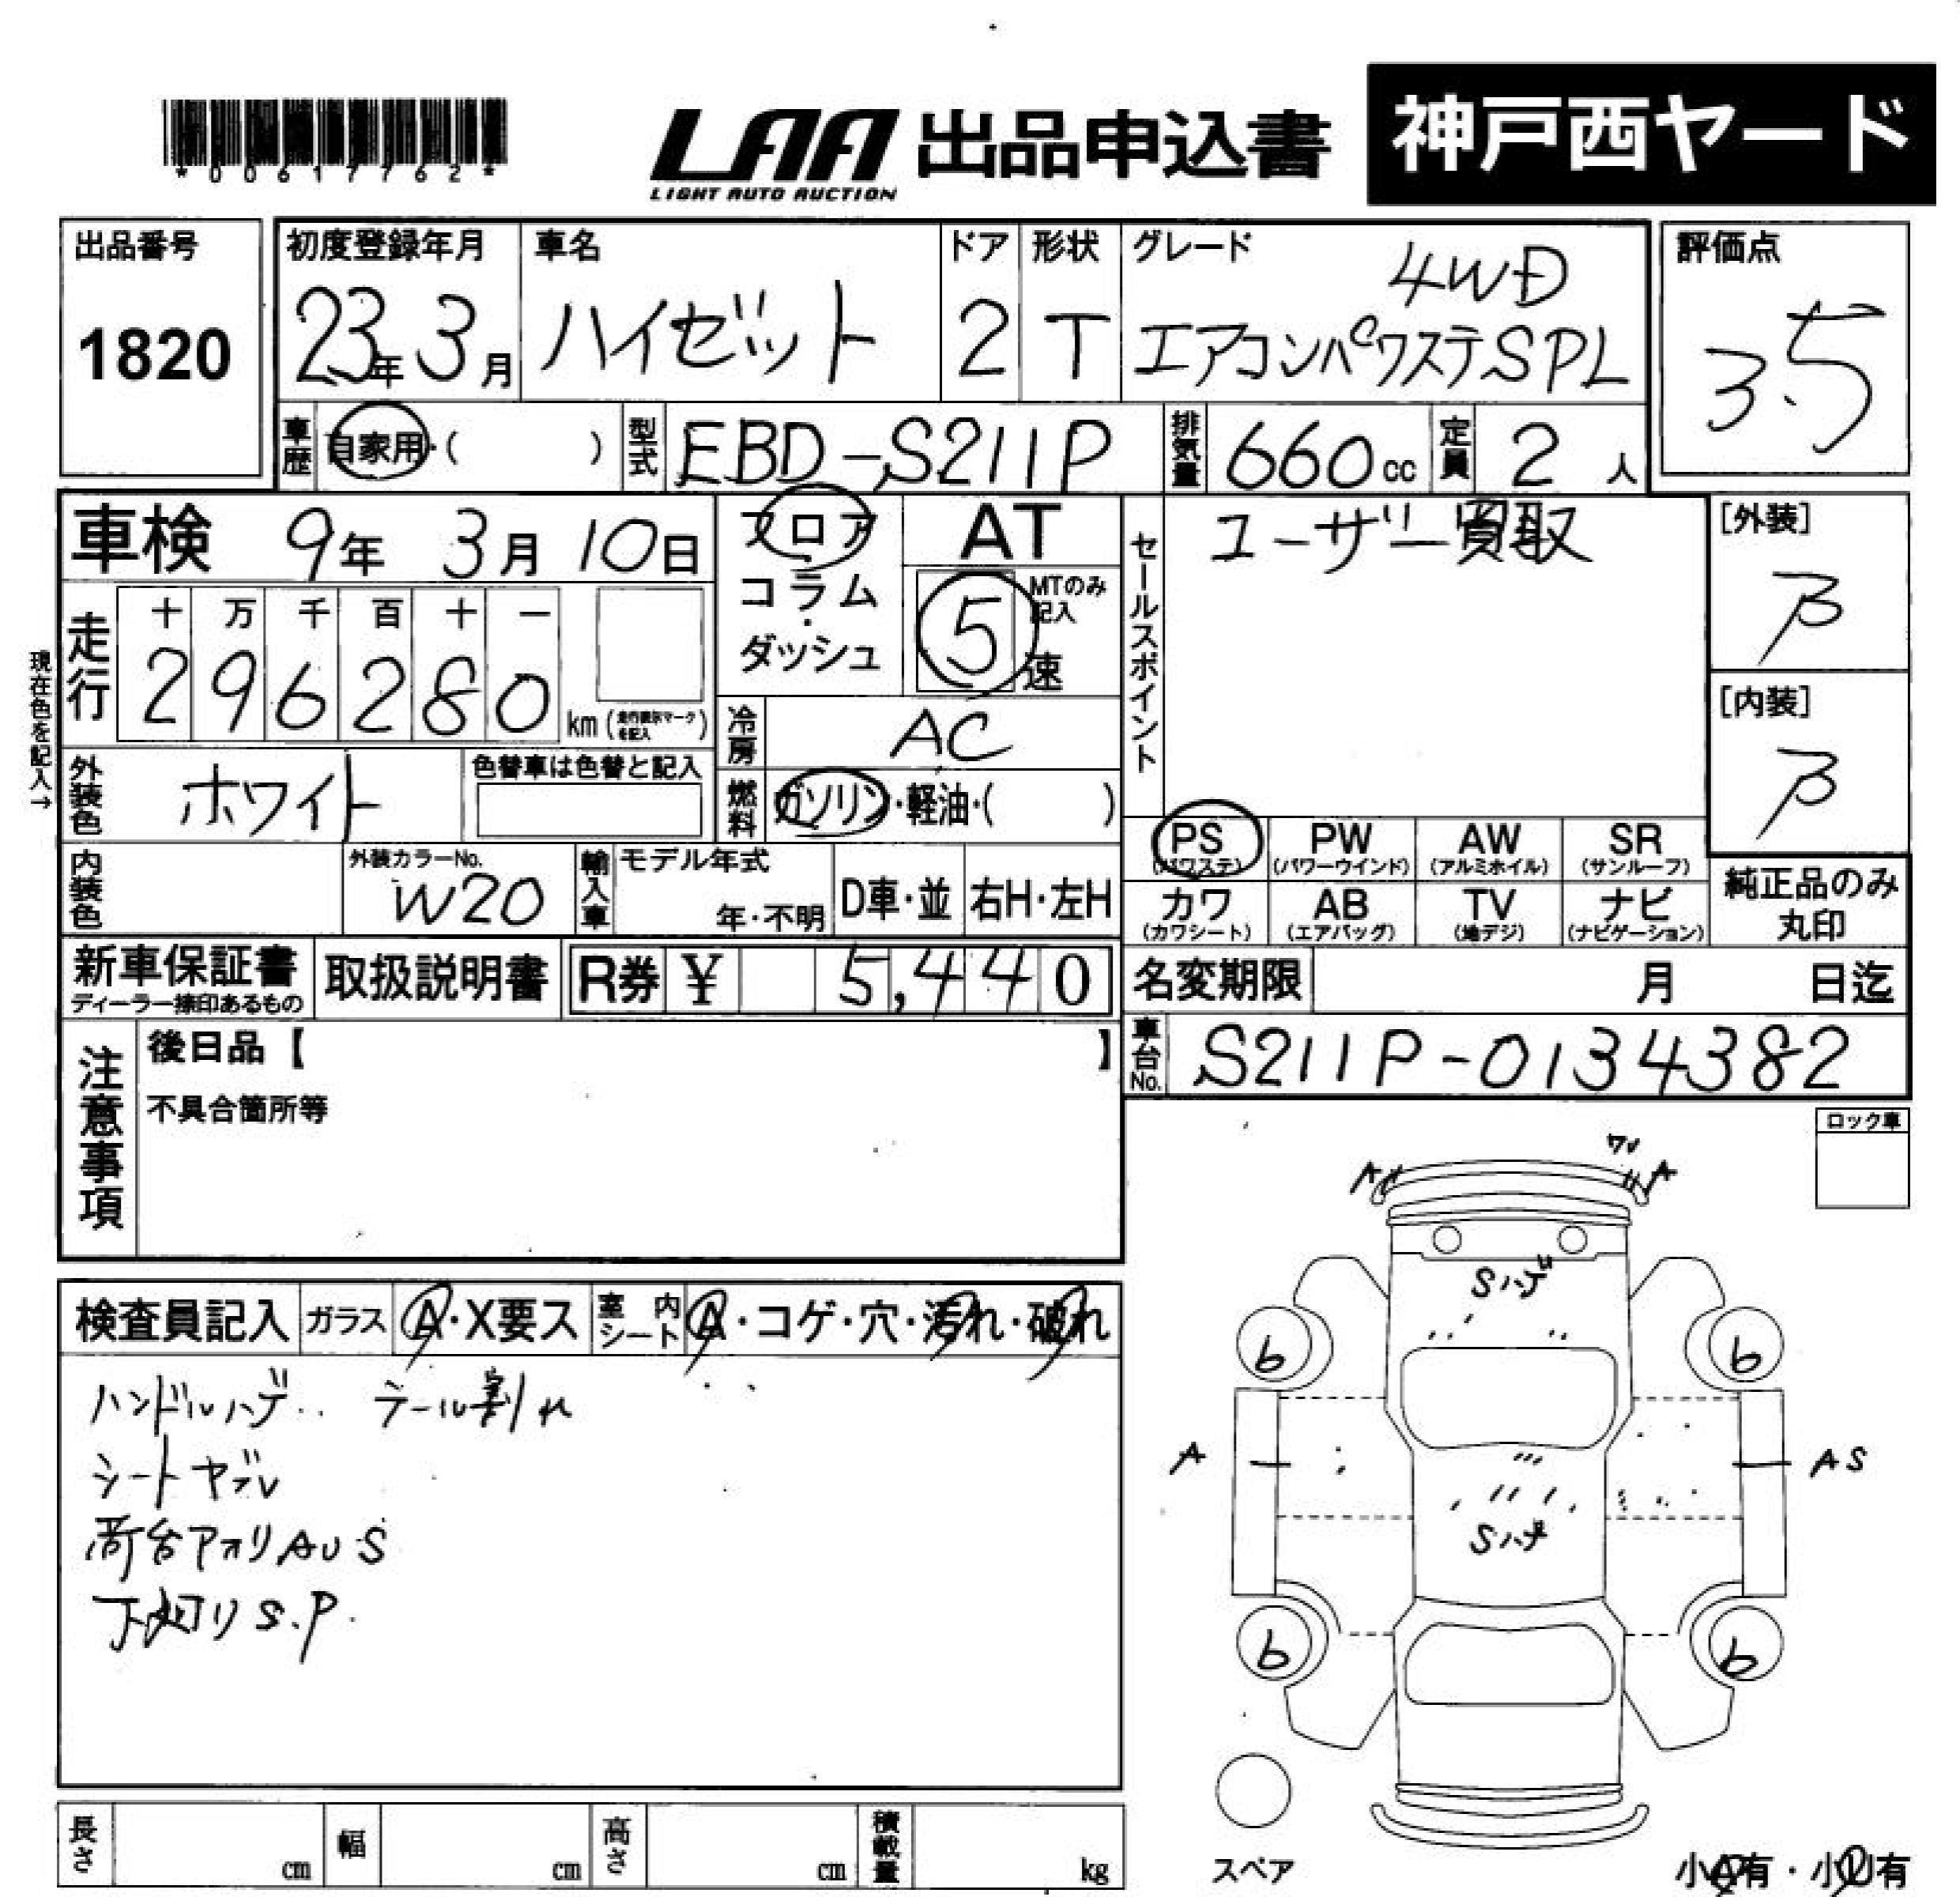 *00617762*
LAA 出品申込書 神戸西ヤード
LIGHT AUTO AUCTION
出品番号 1820
初度登録年月 23年 3月
車名 ハイゼット
ドア 2
形状 T
グレード 4WD
エアコンパワステSPL
評価点 3.5
車歴 自家用・( )
型式 EBD-S211P
排気量 660cc
定員 2人
車検 9年 3月 10日
現在色を記入→
走行 十 万 千 百 十 一
2 9 6 2 8 0 km (走行表示マークを記入)
フロア
コラム
・
ダッシュ
AT
5速 MTのみ記入
冷房 AC
燃料 ガソリン・軽油・( )
外装色 ホワイト
色替車は色替と記入
内装色
外装カラーNo. W20
輸入車 モデル年式 年・不明
D車・並 右H・左H
セールスポイント ユーザー買取
[外装] β
[内装] β
PS (パワステ)
PW (パワーウインド)
AW (アルミホイル)
SR (サンルーフ)
カワ (カワシート)
AB (エアバッグ)
TV (地デジ)
ナビ (ナビゲーション)
純正品のみ丸印
新車保証書 ディーラー捺印あるもの
取扱説明書
R券 ¥ 5,440
名変期限 月 日迄
車台No. S211P-0134382
注意事項
後日品【 】
不具合箇所等
ロック車
検査員記入
ガラス A・X要ス
室内シート A・コゲ・穴・汚れ・破れ
ハンドルハゲ テール割れ
シートヤブレ
荷台アオリAUS
下廻りS.P.
A ワレ A
Sハゲ
b b
A AS
Sハゲ
b b
スペア
小A有・小U有
長さ cm 幅 cm 高さ cm 積載量 kg